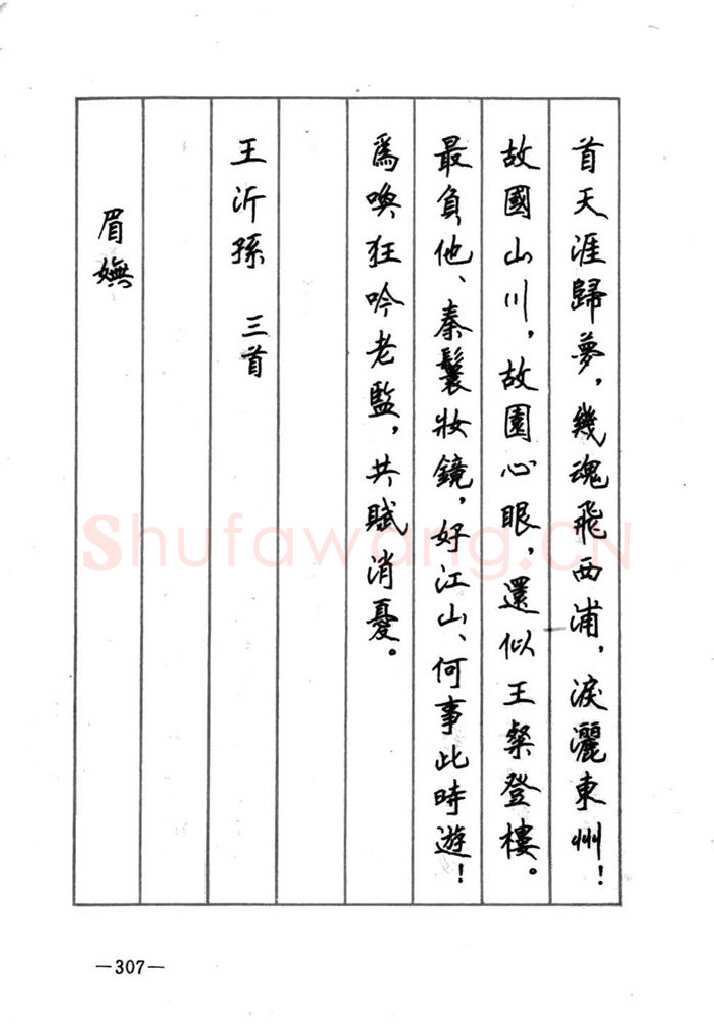 首天涯歸夢，幾魂飛西浦，淚灑東州！
故國山川，故園心眼，還似王粲登樓。
最負他、秦鬟妝鏡，好江山、何事此時遊！
爲喚狂吟老監，共賦消憂。
王沂孫　三首
眉嫵
—307—
Shufawang.CN